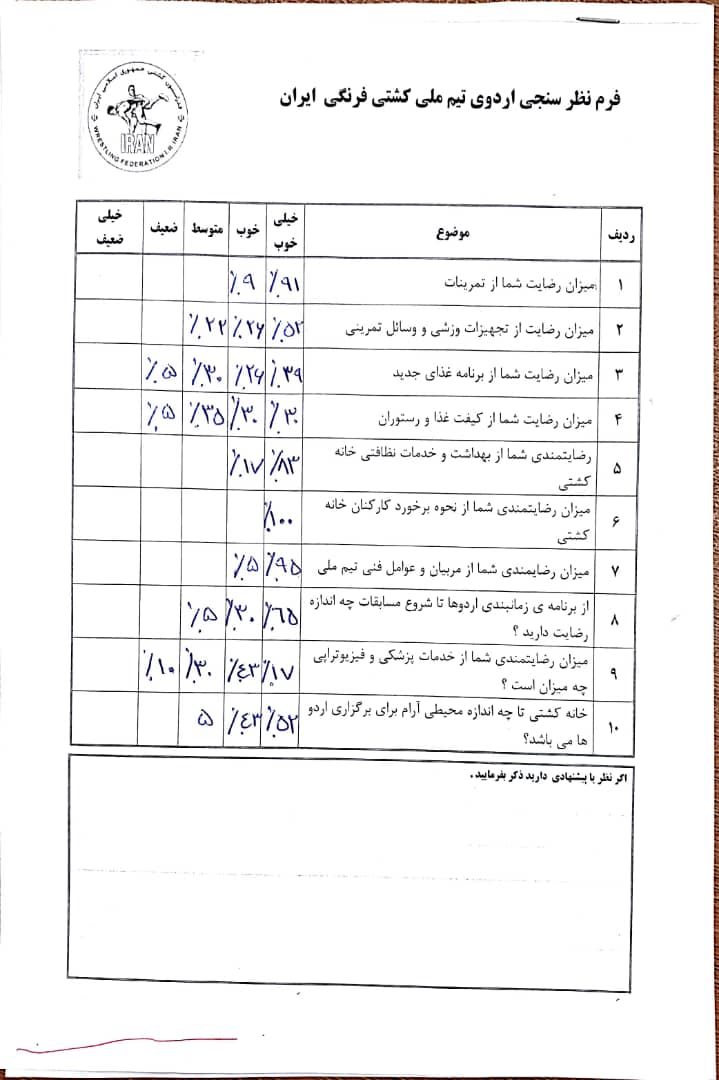 فرم نظر سنجی اردوی تیم ملی کشتی فرنگی ایران
فدراسیون کشتی جمهوری اسلامی ایران
IRAN
WRESTLING FEDERATION I.R.IRAN
ردیف موضوع خیلی خوب خوب متوسط ضعیف خیلی ضعیف
۱ میزان رضایت شما از تمرینات ٪۹۱ ٪۹
۲ میزان رضایت از تجهیزات وزشی و وسائل تمرینی ٪۵۲ ٪۲۶ ٪۲۲
۳ میزان رضایت شما از برنامه غذای جدید ٪۳۹ ٪۲۶ ٪۳۰ ٪۵
۴ میزان رضایت شما از کیفت غذا و رستوران ٪۳۰ ٪۳۰ ٪۳۵ ٪۵
۵ رضایتمندی شما از بهداشت و خدمات نظافتی خانه
کشتی ٪۸۳ ٪۱۷
۶ میزان رضایتمندی شما از نحوه برخورد کارکنان خانه
کشتی ٪۱۰۰
۷ میزان رضایمندی شما از مربیان و عوامل فنی تیم ملی ٪۹۵ ٪۵
۸ از برنامه ی زمانبندی اردوها تا شروع مسابقات چه اندازه
رضایت دارید ؟ ٪۶۵ ٪۳۰ ٪۵
۹ میزان رضایتمندی شما از خدمات پزشکی و فیزیوتراپی
چه میزان است ؟ ٪۱۷ ٪۴۳ ٪۳۰ ٪۱۰
۱۰ خانه کشتی تا چه اندازه محیطی آرام برای برگزاری اردو
ها می باشد؟ ٪۵۲ ٪۴۳ ۵
اگر نظر یا پیشنهادی دارید ذکر بفرمایید .